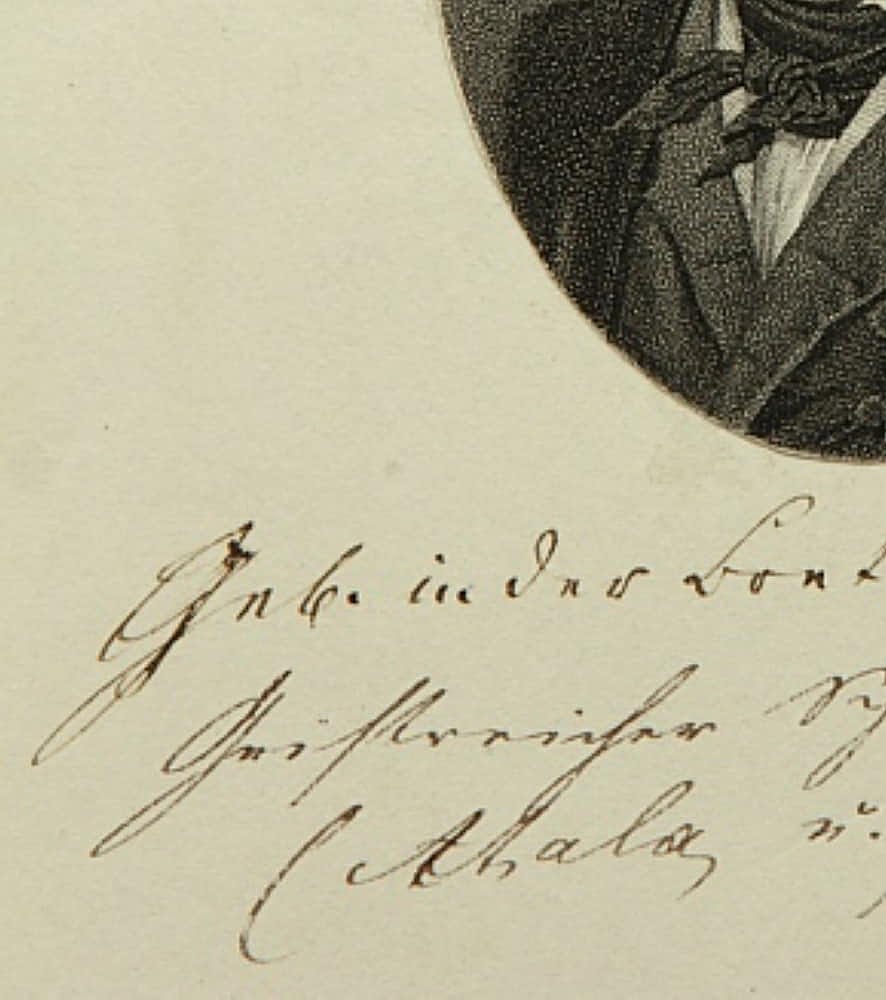 Geb. in der Bret
Geistreicher Sch
(Atala, u.